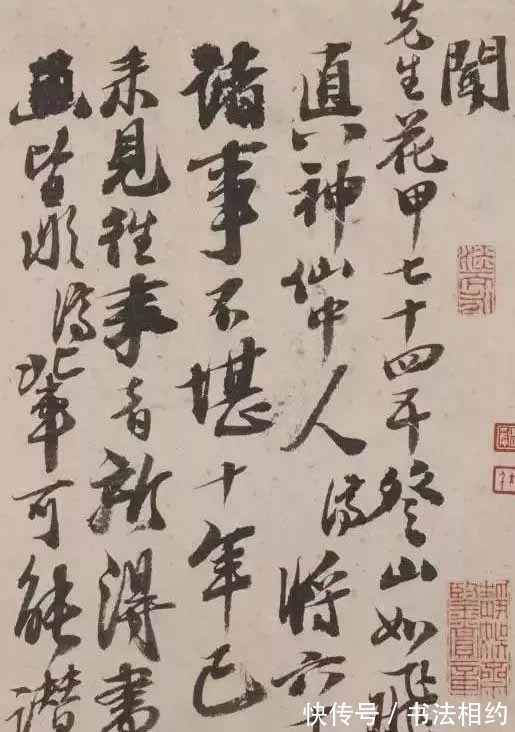 聞
先生花甲七十四五登山如飛
真神仙中人濟將六十
諸事不堪十年已
來見往來者所得書
畫皆非濟輩可能
快传号 / 书法相约